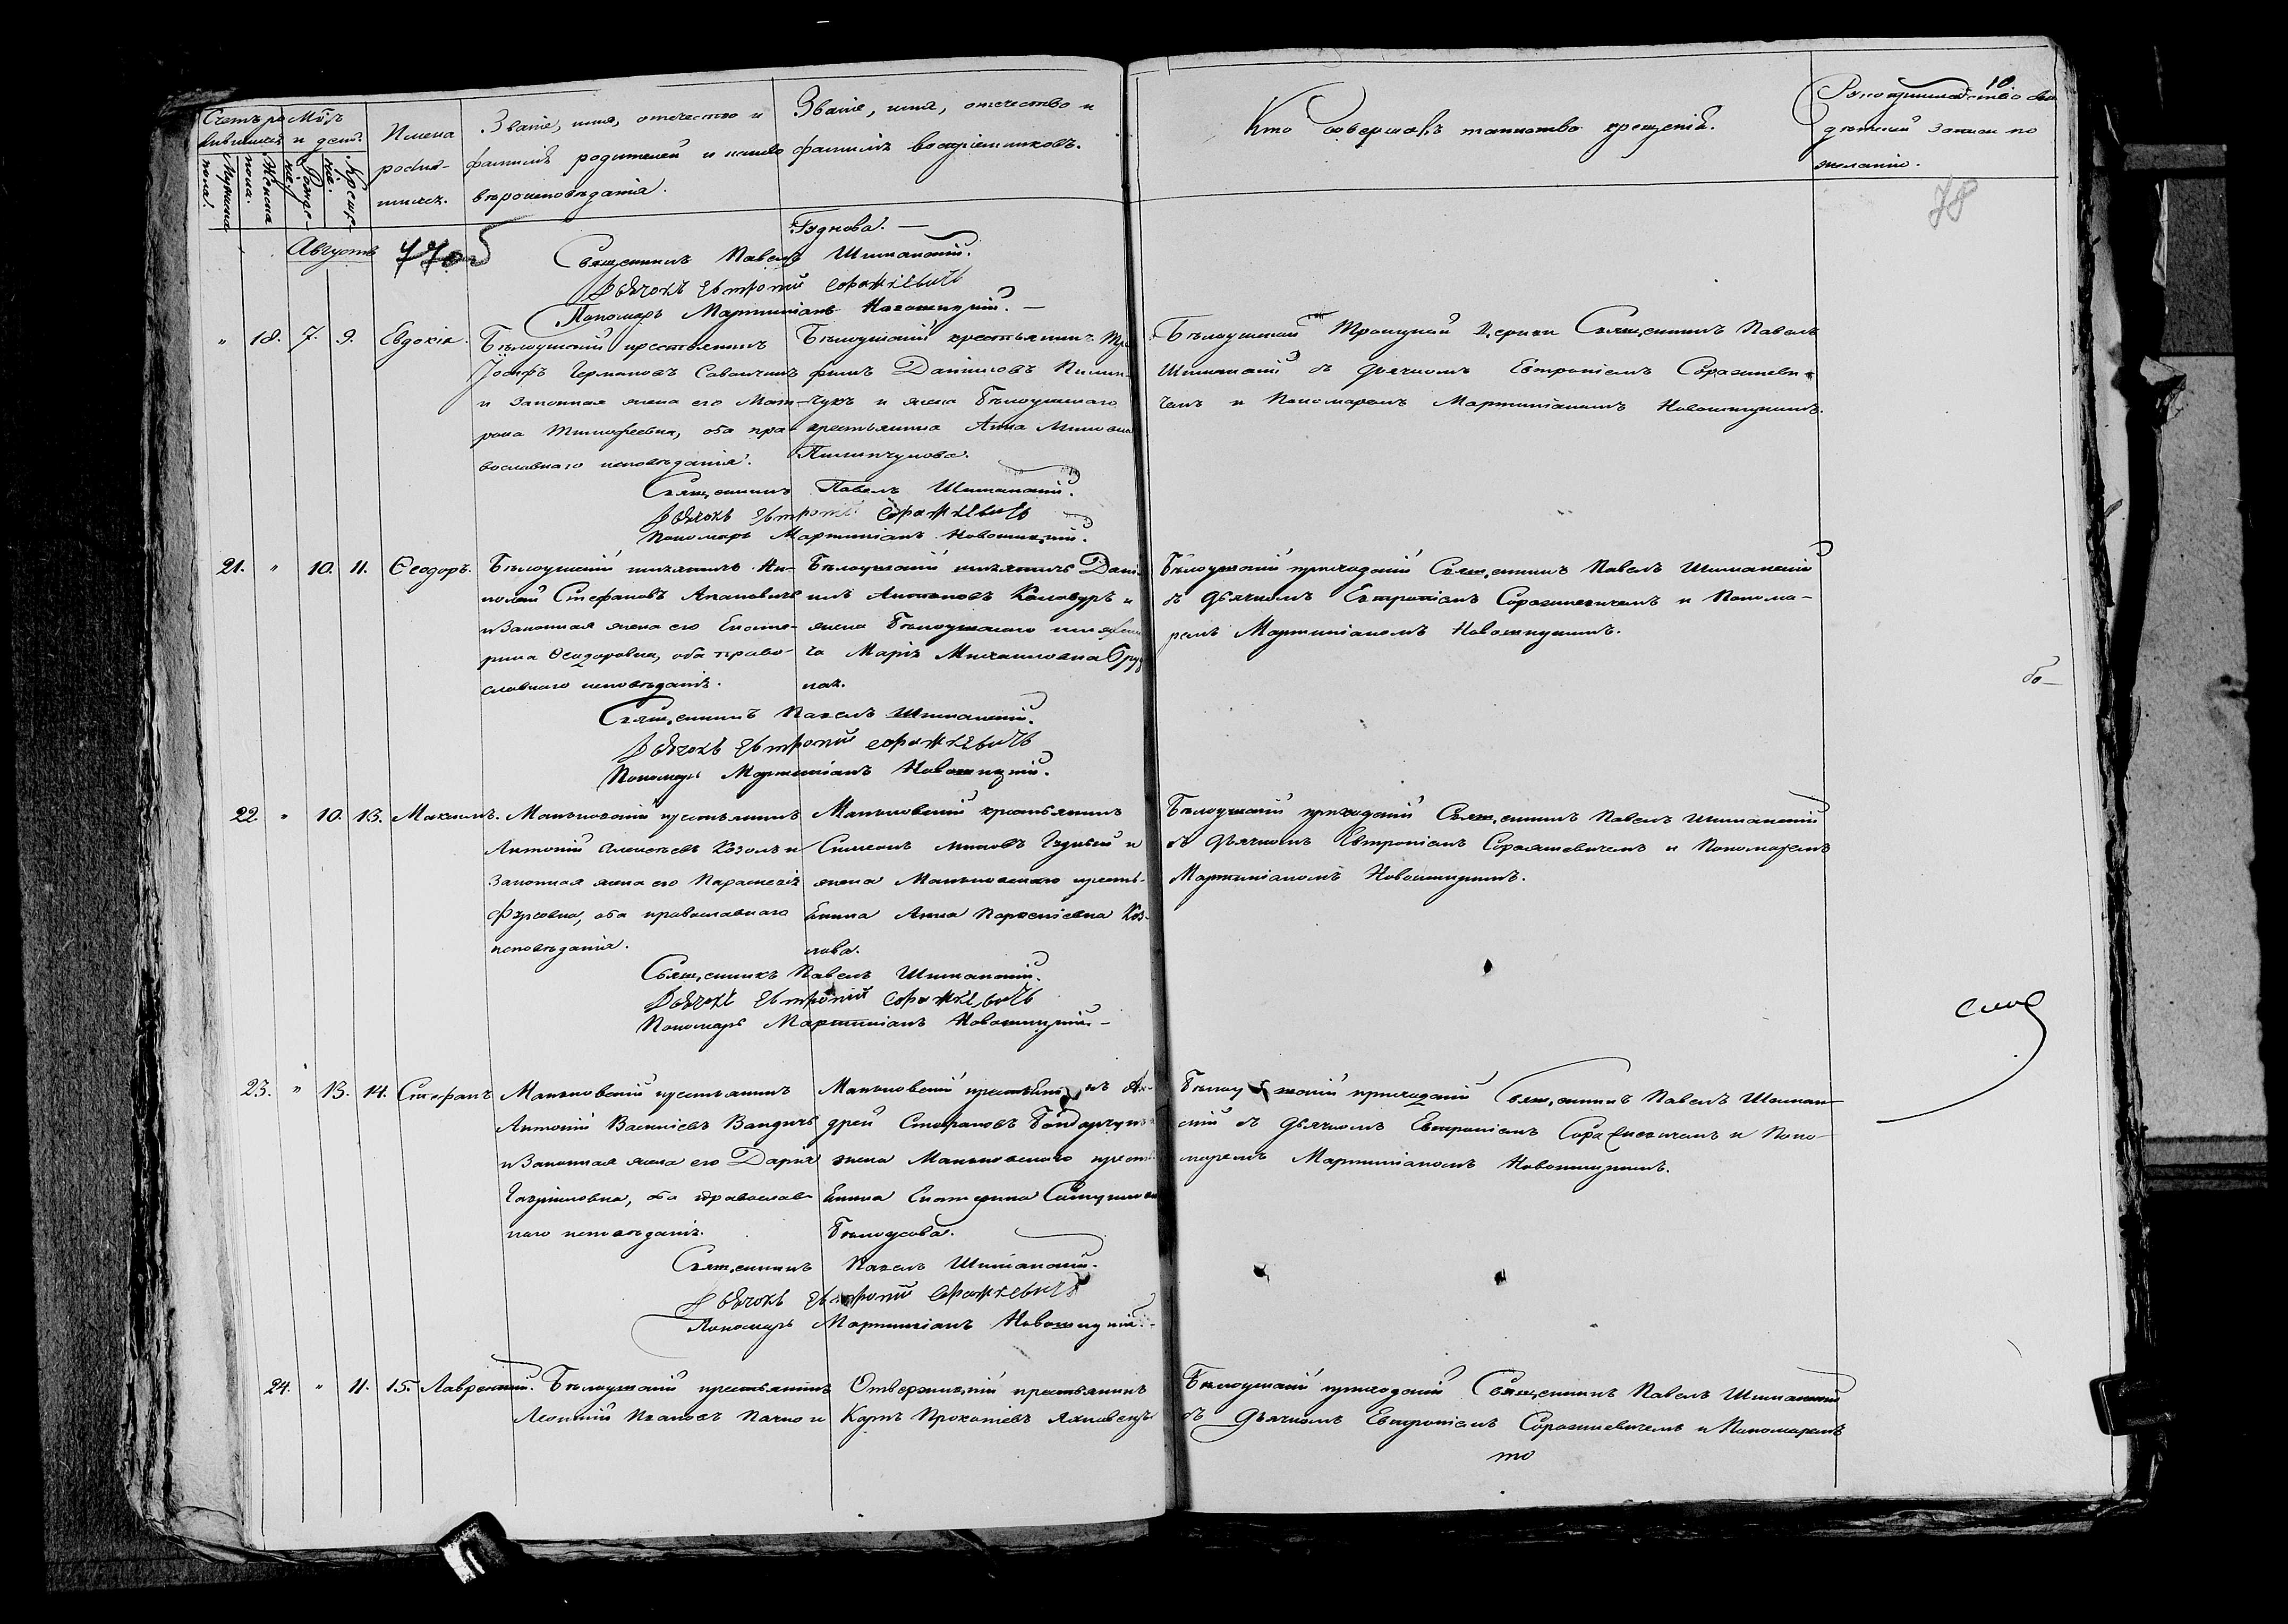 10
Счетъ ро Мѣс.
дившихся и день.
Мужеска пола.
Женска пола.
Рожде- нія.
Креще- нія.
Имена
родив-
шихся.
Званіе, имя, отчество и
фамилія родителей и какого
вѣроисповѣданія.
Званіе, имя, отчество и
фамилія воспріемниковъ.
Кто совершалъ таинство крещенія.
Рукоприкладство сви
дѣтелей записи по
желанію.
78
Августъ
Гуднова. —
Священникъ Павелъ Шиманскій.
Дьячокъ Евтропій Сорожкевичъ
Пономарь Мартиніанъ Новошицкій. —
" 18. 7. 9. Евдокія.
Бѣлоушскій крестьянинъ
Іосифъ Германовъ Савончикъ
и законная жена его Мат-
рона Тимофеевна, оба пра
вославнаго исповѣданія.
Бѣлоушскій крестьянинъ
Даніиловъ
и жена Бѣлоушскаго
крестьянина Анна
Пилипчукова.
Бѣлоушской Троицкой Церкви Священникъ Павелъ
Шиманскій съ Дьячкомъ Евтропіемъ Сорожкеви-
чемъ и Пономаремъ Мартиніаномъ Новошицкимъ.
Священникъ Павелъ Шиманскій.
Дьячокъ Евтропій Сорожкевичъ
Пономарь Мартиніанъ Новошицкій.
21. " 10. 11. Ѳеодоръ.
Бѣлоушскій мѣщанинъ Ни-
колай Стефановъ
и законная жена его Екате-
рина Ѳеодоровна, оба право-
славнаго исповѣданія.
Бѣлоушскій мѣщанинъ Дані-
илъ Антоновъ и
жена Бѣлоушскаго мѣщани
на Марія Михаиловна
Бѣлоушскій приходскій Священникъ Павелъ Шиманскій
съ Дьячкомъ Евтропіемъ Сорожкевичемъ и Понома-
ремъ Мартиніаномъ Новошицкимъ.
Священникъ Павелъ Шиманскій.
Дьячокъ Евтропій Сорожкевичъ
Пономарь Мартиніанъ Новошицкій.
22. " 10. 13. Максимъ.
Маньковскій крестьянинъ
Антоній Алексѣевъ Козолъ и
законная жена его Параскевія
оба православнаго
исповѣданія.
Маньковскій крестьянинъ
Симеонъ и
жена Маньковскаго кресть-
янина Анна Коз-
лова.
Бѣлоушскій приходскій Священникъ Павелъ Шиманскій
съ Дьячкомъ Евтропіемъ Сорожкевичемъ и Пономаремъ
Мартиніаномъ Новошицкимъ.
Священникъ Павелъ Шиманскій.
Дьячокъ Евтропій Сорожкевичъ
Пономарь Мартиніанъ Новошицкій. —
23. " 13. 14. Стефанъ
Маньковскій крестьянинъ
Антоній Василіевъ
и законная жена его Дарія
Гавріиловна, оба православ
наго исповѣданія.
Маньковскій крестьянинъ Ан-
дрей Стефановъ Бондарчукъ
жена Маньковскаго кресть
янина Екатерина
Бѣлоусова.
Бѣлоушскій приходскій Священникъ Павелъ Шиман-
скій съ Дьячкомъ Евтропіемъ Сорожкевичемъ и Поно-
маремъ Мартиніаномъ Новошицкимъ.
Священникъ Павелъ Шиманскій.
Дьячокъ Евтропій Сорожкевичъ
Пономарь Мартиніанъ Новошицкій.
24. " 11. 15. Лаврентій.
Бѣлоушскій крестьянинъ
Леонтій Ивановъ и
Отвержицкій крестьянинъ
Карпъ Прокопіевъ Яковецъ
Бѣлоушскій приходскій Священникъ Павелъ Шиманскій
съ Дьячкомъ Евтропіемъ Сорожкевичемъ и Пономаремъ